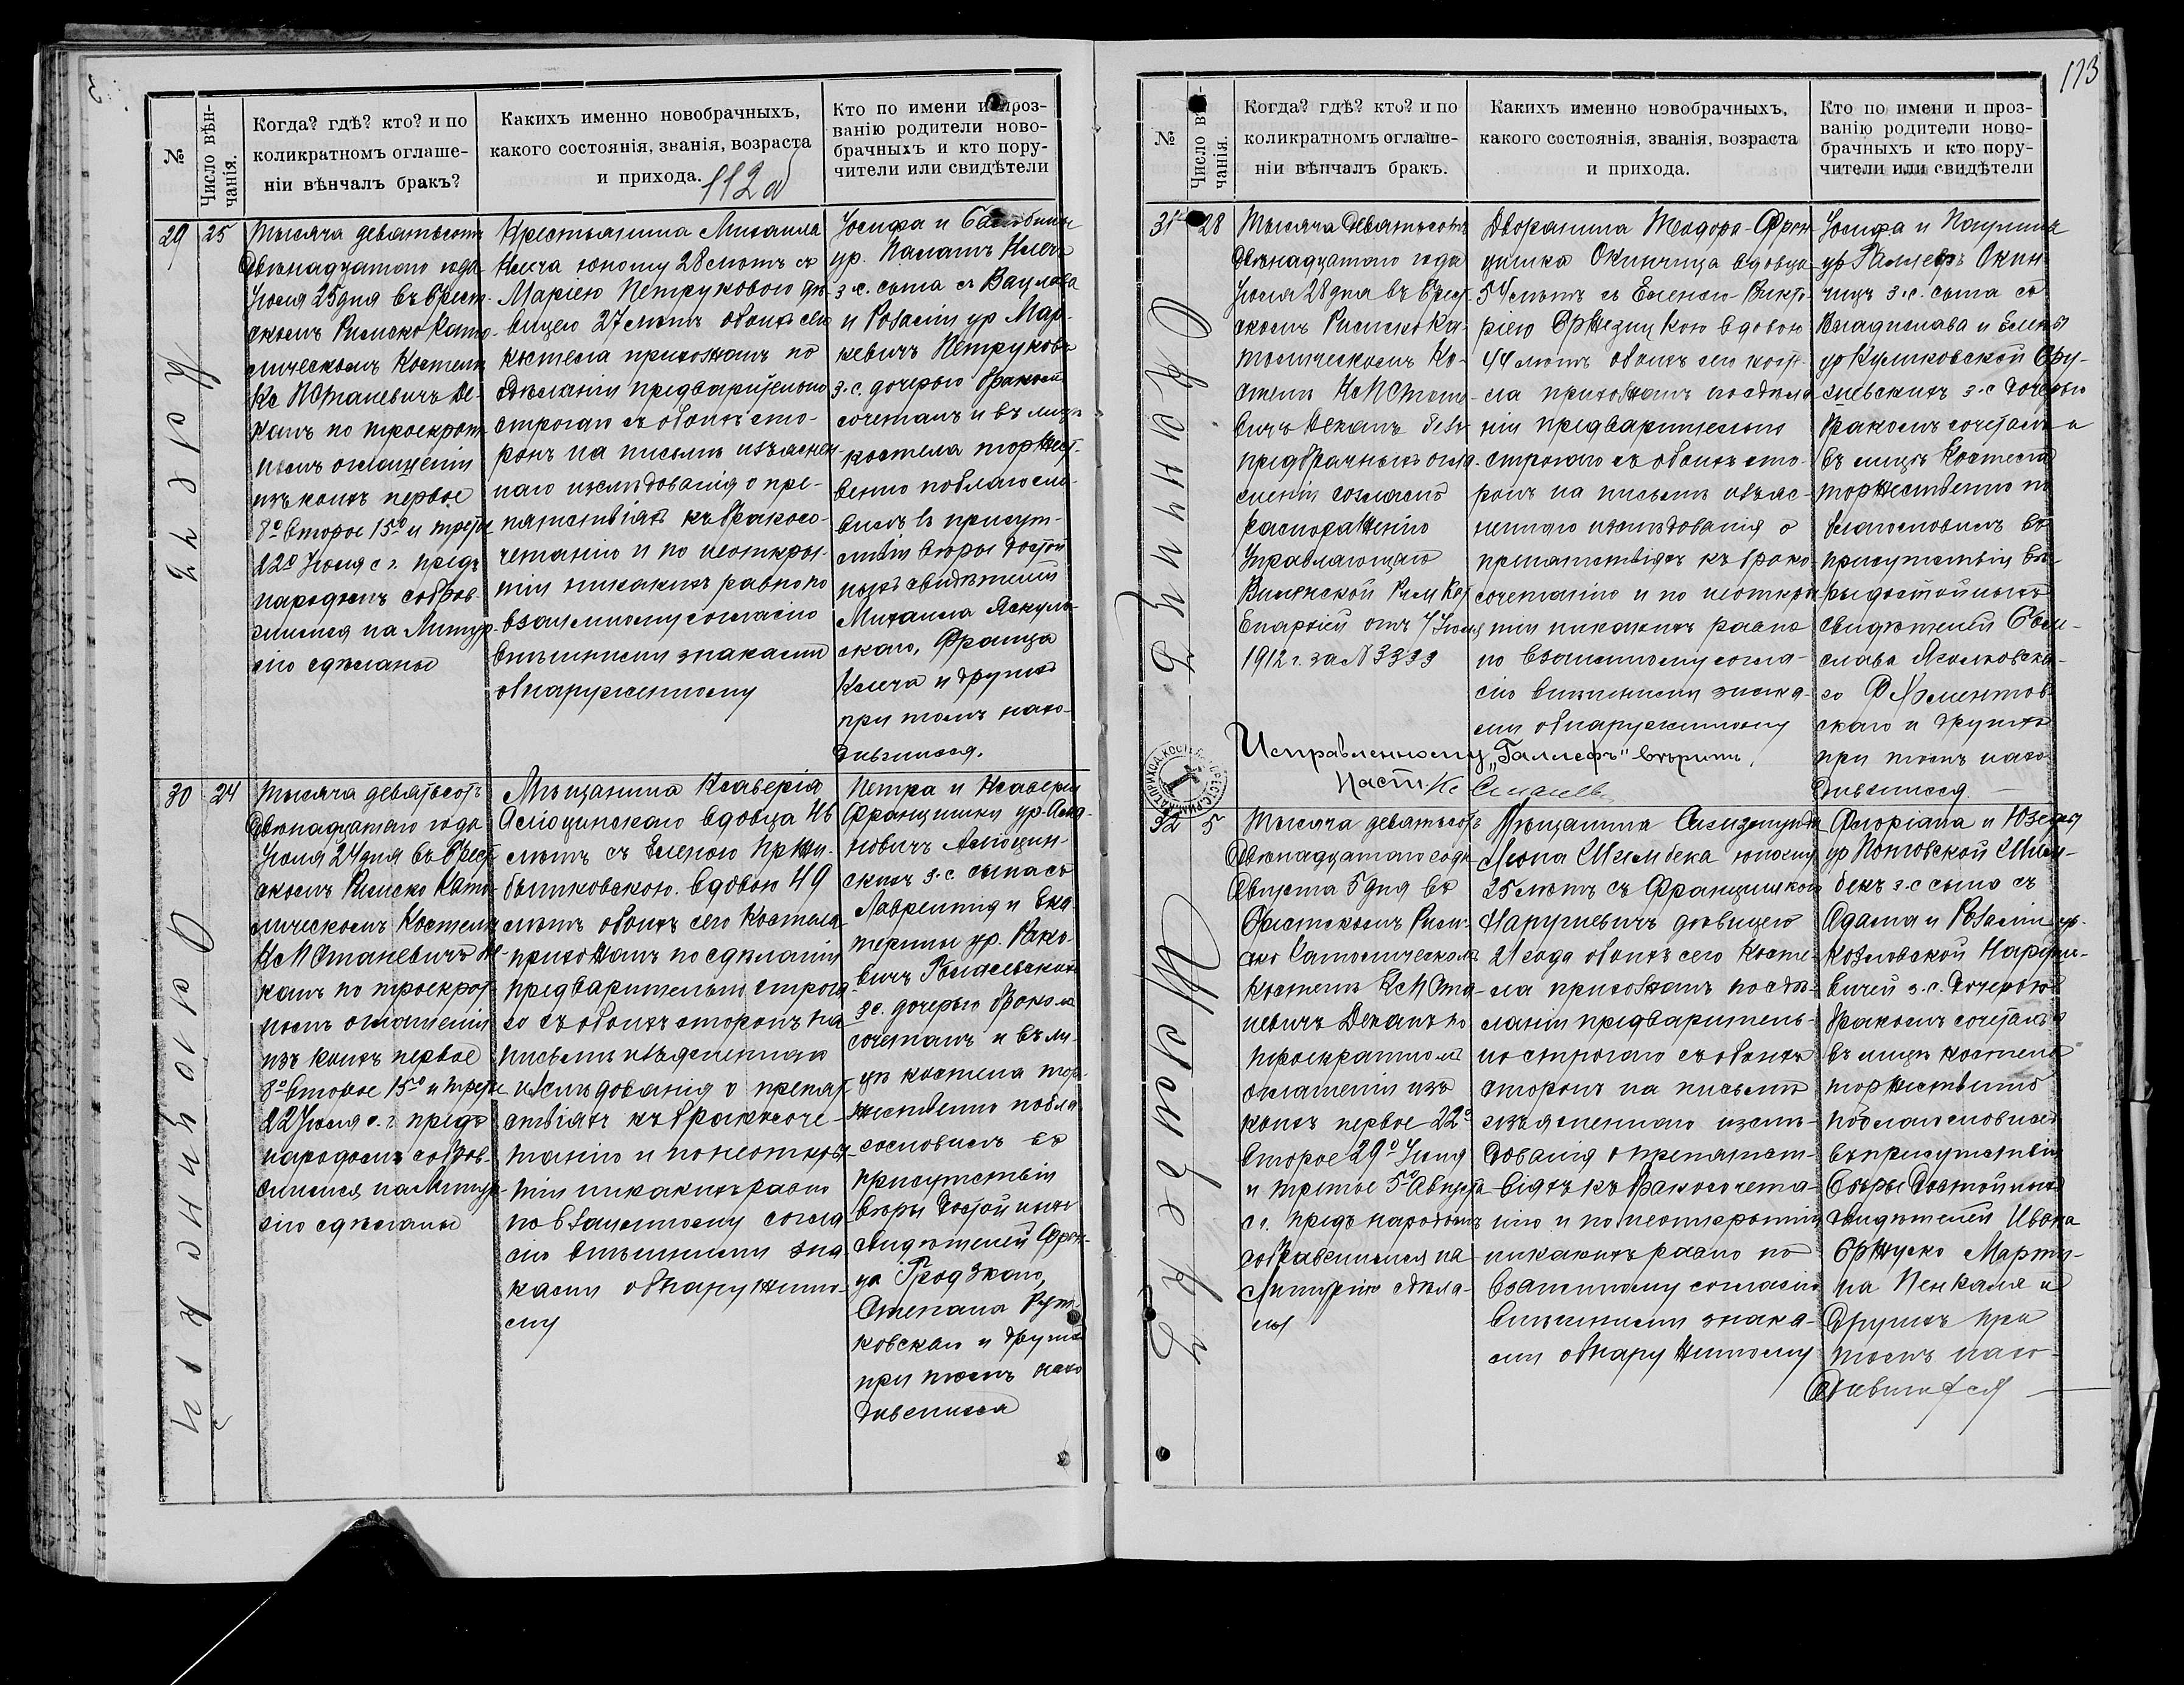 112 об
№
Число вѣн-
чанія.
Когда? гдѣ? кто? и по
коликратномъ оглаше-
ніи вѣнчалъ бракъ?
Какихъ именно новобрачныхъ,
какого состоянія, званія, возраста
и прихода.
Кто по имени и проз-
ванію родители ново-
брачныхъ и кто пору-
чители или свидѣтели
29
25
Тысяча девятьсотъ
двѣнадцатаго года
Іюля 25 дня въ Брест-
скомъ Римско Като-
лическомъ Костелѣ
Кс П Станевичъ Де-
канъ по троекрат-
номъ оглашеніи
изъ коихъ первое
8º второе 15º и третье
22º Іюля с. г. предъ
народомъ собрав-
шимся на Литур-
гію сдѣланы
Крестьянина Михаила
Клеча юношу 28 лѣтъ съ
Маріею Петруковою дѣ-
вицею 27 лѣтъ обоихъ сего
костела прихожанъ по
сдѣланіи предварительно
строгаго съ обоихъ сто-
ронъ на письмѣ изъяснен-
наго изслѣдованія о пре-
пятствіяхъ къ бракосо-
четанію и по неоткры-
тіи никакихъ равно по
взаимному согласію
внѣшними знаками
обнаруженному
Іосифа и
ур.
з. с. сына съ Вацлава
и Розаліи ур Мар-
кевичъ Петруковъ
з. с. дочерью бракомъ
сочеталъ и въ лицѣ
костела торжест-
венно поблагосло-
вилъ въ присут-
ствіи вѣры достой
ныхъ свидѣтелей
Михаила Яскуль-
скаго, Франца
Клеча и другихъ
при томъ нахо-
дившихся.
30
24
Тысяча девятьсотъ
двѣнадцатаго года
Іюля 24 дня въ Брест
скомъ Римско Като-
лическомъ Костелѣ
Кс П Станевичъ Де-
канъ по троекрат-
номъ оглашеніи
изъ коихъ первое
8º второе 15º и третье
22 Іюля с. г. предъ
народомъ собрав-
шимся на Литур-
гію сдѣланы
Мѣщанина Ксаверія
вдовца 46
лѣтъ съ Еленою
вдовою 49
лѣтъ обоихъ сего Костела
прихожанъ по сдѣланіи
предварительно строга
го съ обоихъ сторонъ на
письмѣ изъясненнаго
изслѣдованія о препят-
ствіяхъ къ бракосоче-
танію и по неоткры-
тіи никакихъ равно
по взаимному согла
сію внѣшними зна-
ками обнаруженно-
му
Петра и Ксаверіи
Францишки ур.
новичъ
скихъ з. с. сына съ
Лаврентія и Ека-
терины ур. Рако-
вичъ
з с. дочерью бракомъ
сочеталъ и въ ли-
цѣ костела тор-
жественно побла
гословилъ въ
присутствіи
вѣры достойныхъ
свидѣтелей Фран-
ца Гродзкаго,
Степана Рут-
ковскаго и другихъ
при томъ нахо
дившихся
113
№
Число вѣн-
чанія.
Когда? гдѣ? кто? и по
коликратномъ оглаше-
ніи вѣнчалъ бракъ.
Какихъ именно новобрачныхъ,
какого состоянія, званія, возраста
и прихода.
Кто по имени и проз-
ванію родители ново-
брачныхъ и кто пору-
чители или свидѣтели
31
28
Окинчицъ
Тысяча девятьсотъ
двѣнадцатаго года
Іюля 28 дня въ Брест-
скомъ Римско Ка-
толическомъ Ко-
стелѣ Кс П Стане-
вичъ Деканъ безъ
предбрачныхъ огла-
шеній согласно
распоряженію
Управляющаго
Виленской Рим Кат
Епархіей отъ 7 Іюля
1912 г. за № 3339
Дворянина Теодора-Фран
цишка Окинчица вдовца
54 лѣтъ съ Еленою-Викто-
ріею вдовою
44 лѣтъ обоихъ сего косте-
ла прихожанъ по сдѣла
ніи предварительно
строгаго съ обоихъ сто-
ронъ на письмѣ изъяс-
неннаго изслѣдованія о
препятствіяхъ къ брако-
сочетанію и по неоткры
тіи никакихъ равно
по взаимному согла-
сію внѣшними знака-
ми обнаруженному
Іосифа и Паулины
ур Галлефъ Окин-
чицъ з. с. сына съ
Владислава и Елены
ур Куликовской
з. с дочерью
бракомъ сочеталъ и
въ лицѣ Костела
торжественно по
благословилъ въ
присутствіи вѣ-
ры достойныхъ
свидѣтелей
слава
го
скаго и другихъ
при томъ нахо
дившихся
Исправленному „Галлефъ" вѣрить.
Наст. Кс
32
5
Тысяча девятьсотъ
двѣнадцатаго года
Августа 5 дня въ
Брестскомъ Рим-
ско Католическомъ
Костелѣ Кс П Ста-
невичъ Деканъ по
троекратномъ
оглашеніи изъ
коихъ первое 22º
второе 29º Іюля
и третье 5º Августа
с г. предъ народомъ
собравшимся на
Литургію сдѣла-
ны
Мѣщанина Сигизмунда
Леона Шимбека юношу
25 лѣтъ съ Францишкою
Нарушевичъ дѣвицею
21 года обоихъ сего Косте-
ла прихожанъ по сдѣ-
ланіи предваритель-
но строгаго съ обоихъ
сторонъ на письмѣ
изъясненнаго изслѣ-
дованія о препятст-
віяхъ къ бракосочета-
нію и по неоткрытіи
никакихъ равно по
взаимному согласію
внѣшними знака-
ми обнаруженному
Флоріана и Юзефы
ур Шим-
бекъ з. с сына съ
Адама и Розаліи ур.
Козловской Наруше-
вичей з. с. дочерью
бракомъ сочеталъ и
въ лицѣ костела
торжественно
поблагословилъ
въ присутствіи
вѣры достойныхъ
свидѣтелей Ивана
Марти-
на и
другихъ при
томъ нахо-
дившихся